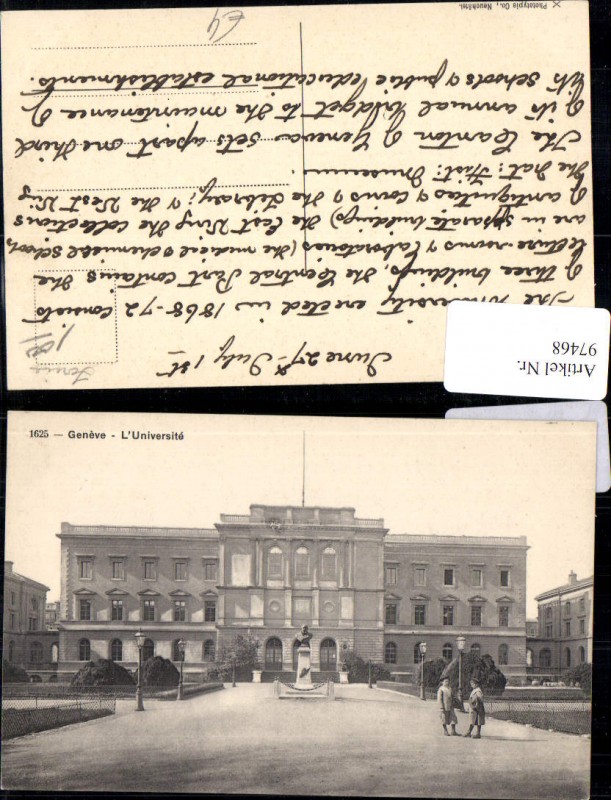 June 27th - July 1st
The University erected in 1868-72 consists
of three buildings, the Central Part contains the
lecture-rooms & laboratories (the medical & chemical schools
are in separate buildings) the East Wing the collections
of antiquities & coins & the Library; & the West Wing
the Nat: Hist: Museum.
The Canton of Geneva sets apart one third
of its annual budget to the maintenance of
its schools & public educational establishments.
Phototypie Co., Neuchâtel.
Artikel Nr.
97468
1625 — Genève - L'Université